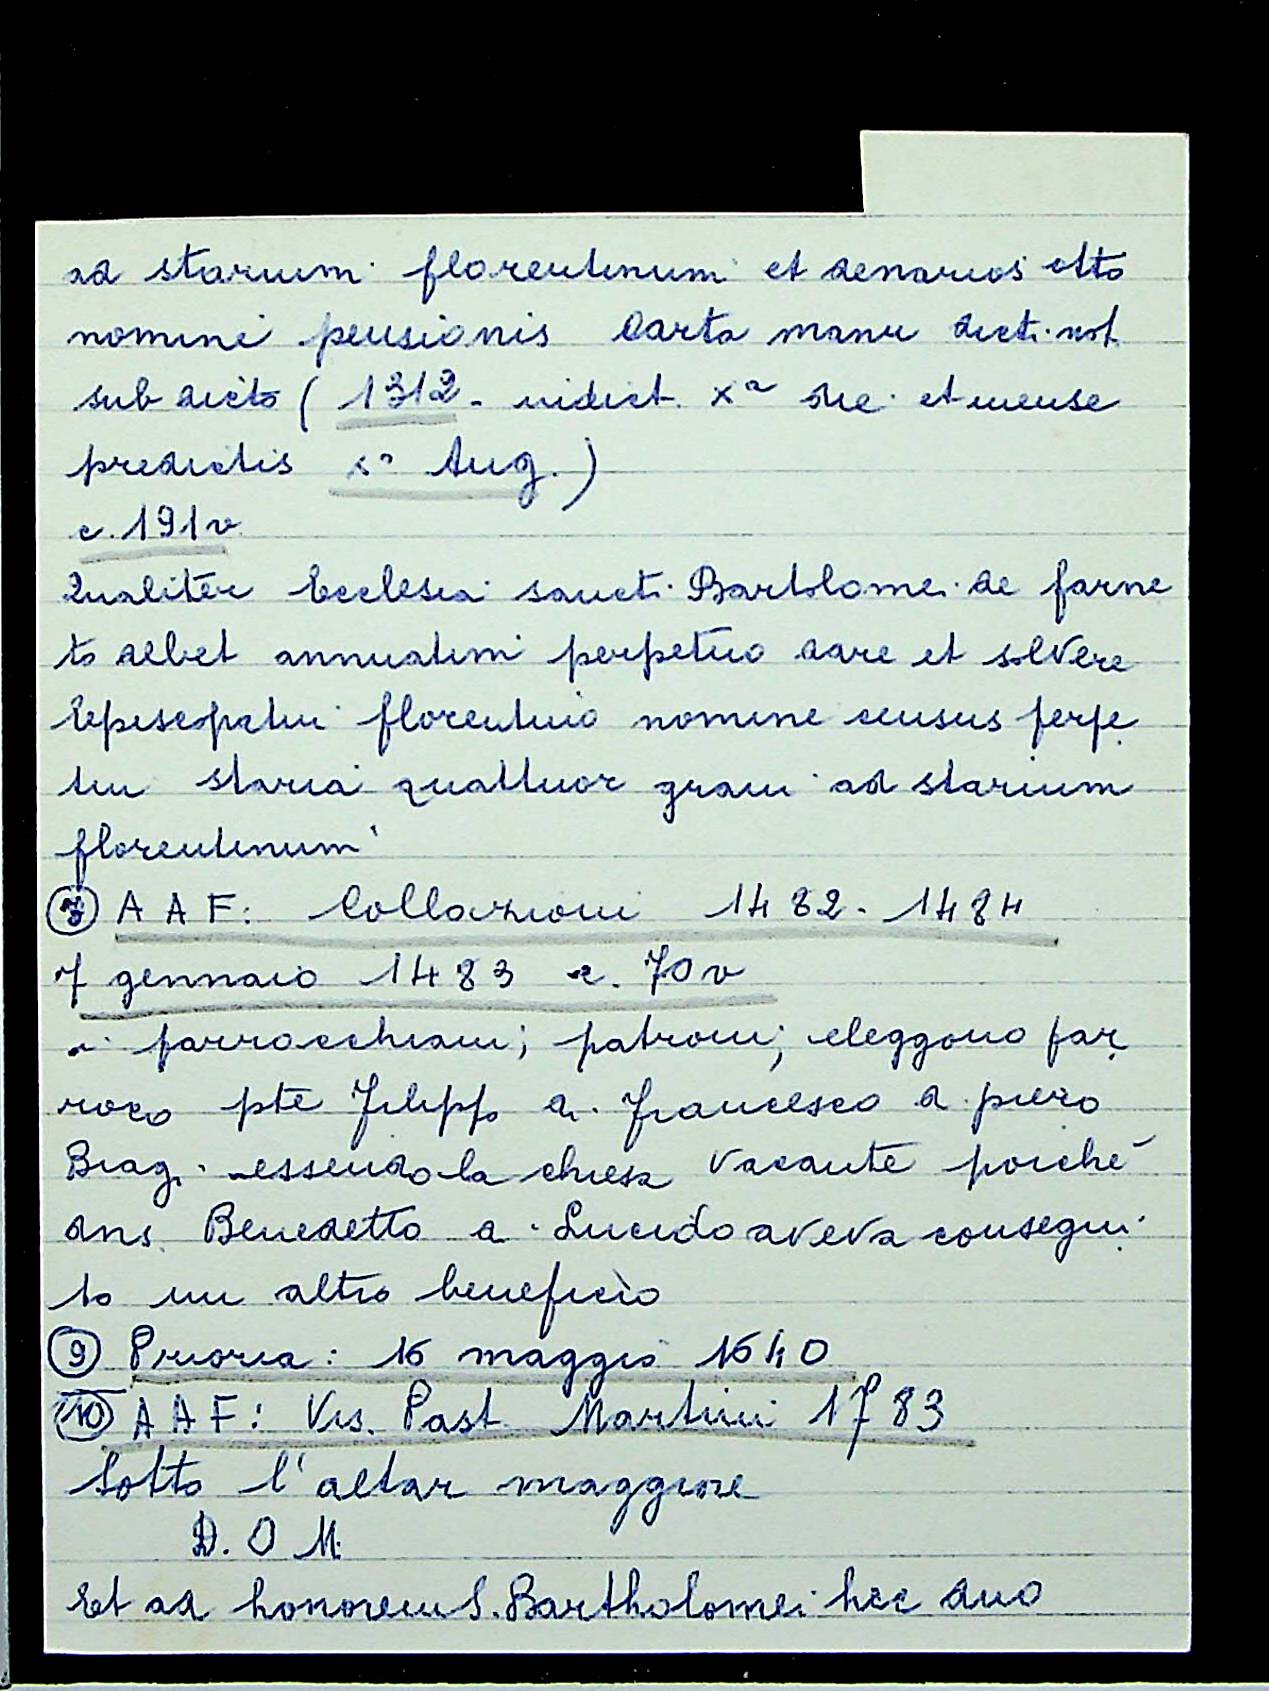 ad starium florentinum et denarios otto
nomine pensionis Carta manu dicti not.
sub dicto ( 1312 - indict. xª die et mense
predictis xª Aug. )
c. 191v
Qualiter Ecclesia sancti Bartolomei de farne
to debet annuatim perpetuo dare et solvere
Episcopatui florentino nomine census perpe
tui staria quattuor grani ad starium
florentinum
AAF: Collazioni 1482 - 1484
7 gennaio 1483 c. 70v
i parrocchiani; patroni; eleggono par
roco pte Filippo di Francesco d piero
Biag. essendo la chiesa vacante poiché
dns. Benedetto d. Lucido aveva consegui
to un altro beneficio
9 Prioria: 16 maggio 1640
10 AAF: Vis. Past. Martini 1783
Sotto l'altar maggiore
D. O M.
Et ad honorem S. Bartholomei hec duo